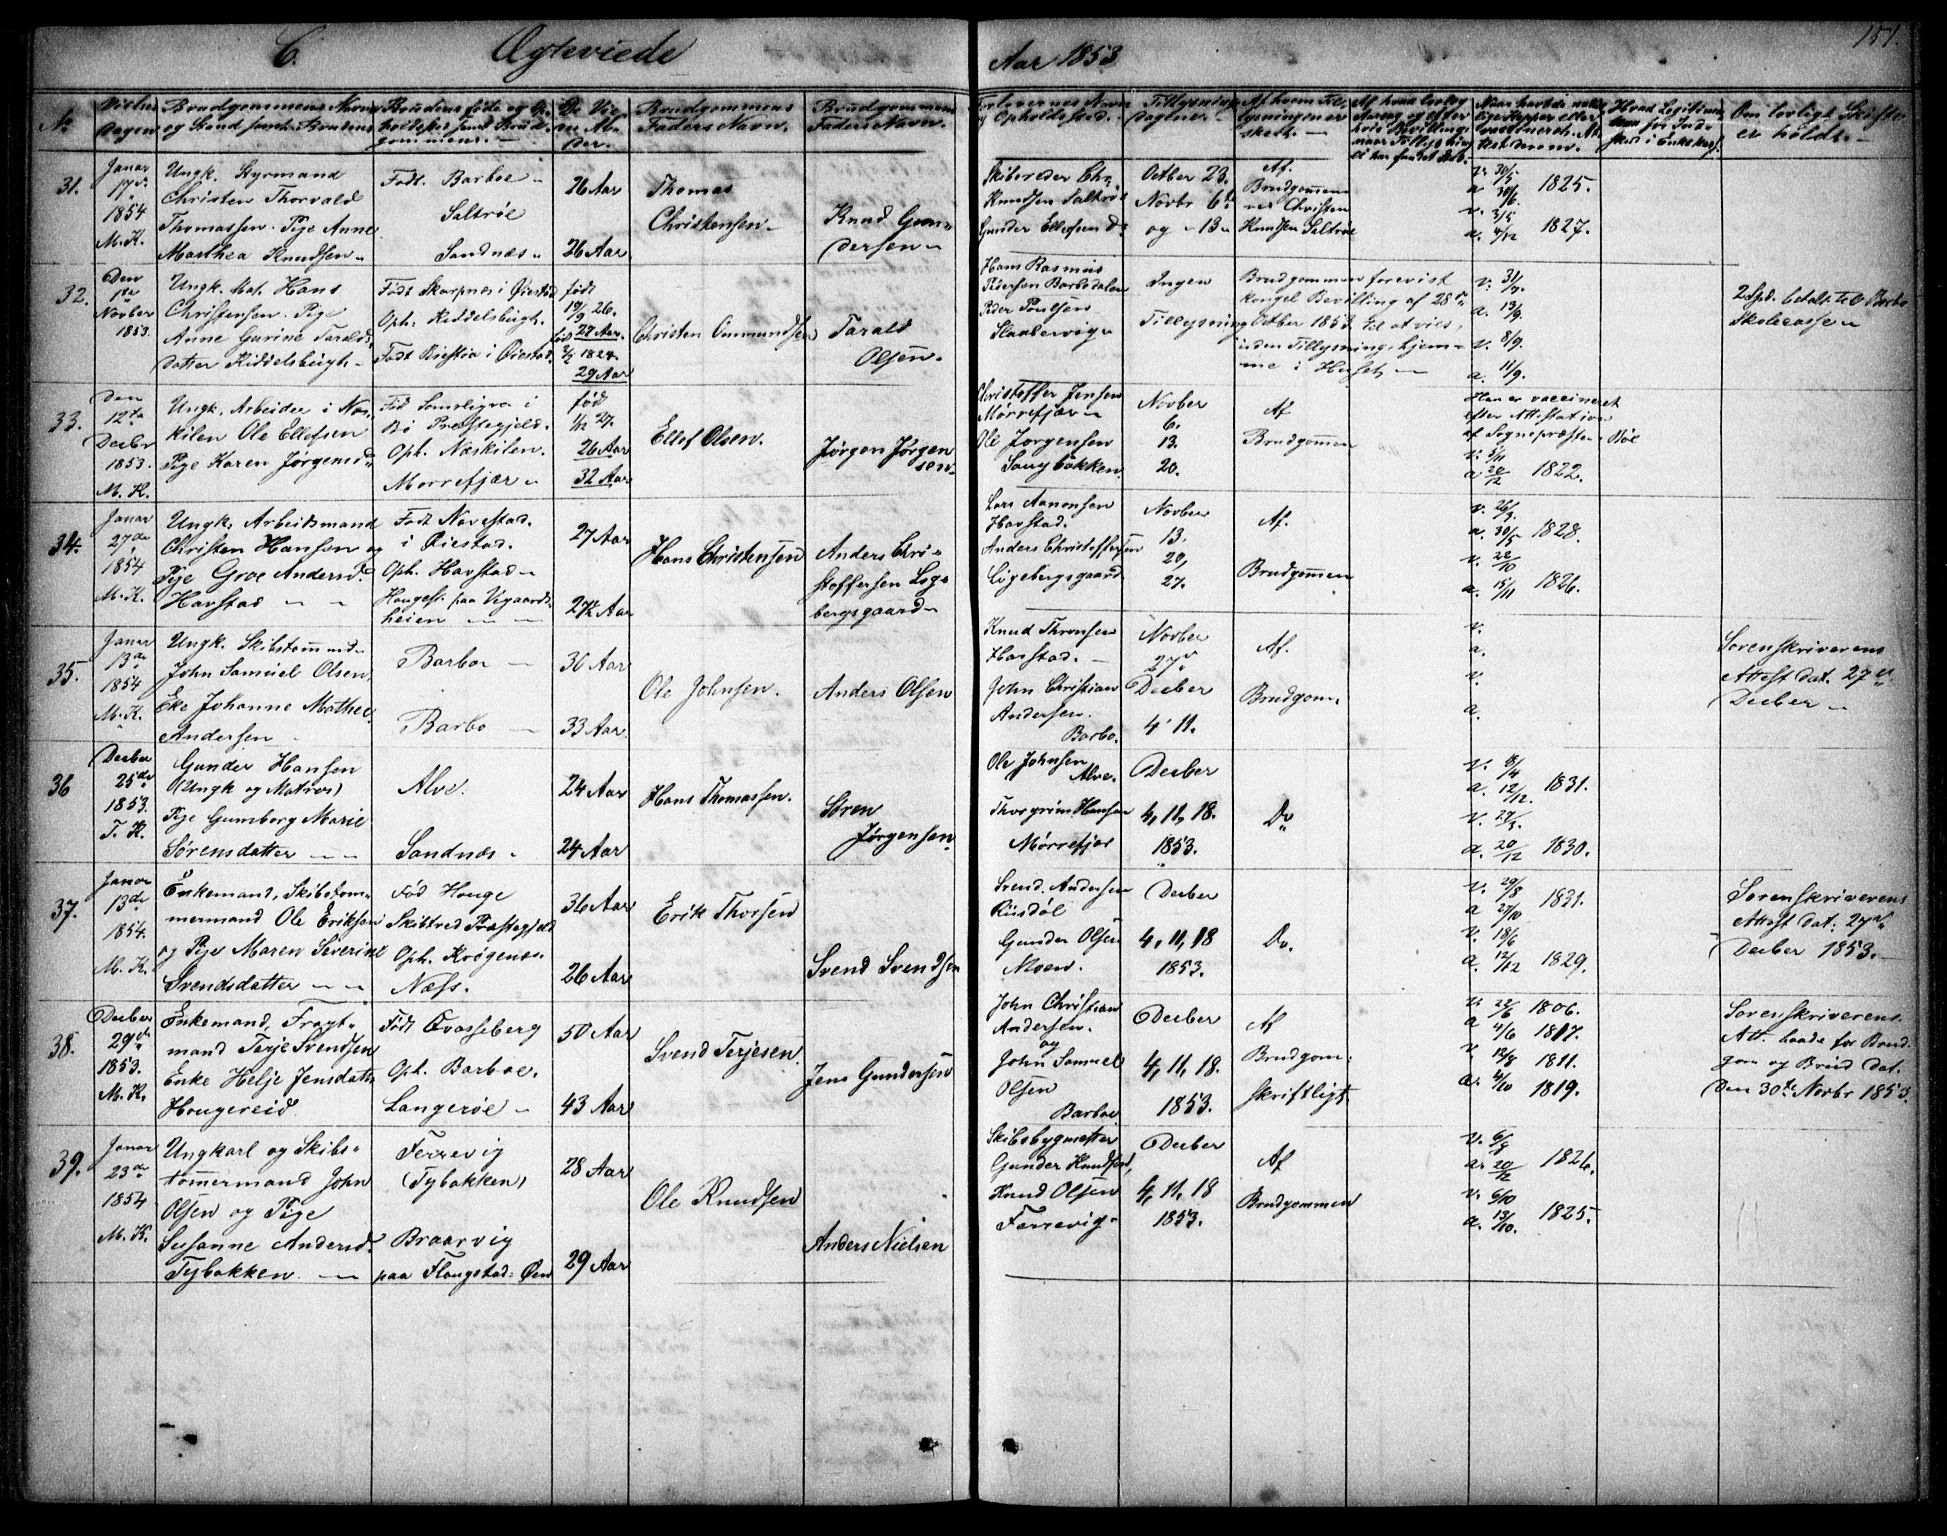 C. Ægteviede
Aar 1853
151.
No
Vielses Dagen
Brudgommens Navn og Stand samt Brudens
Brudgommens Faders Navn.
Forlovernes Navn og Opholdssted.
Tillysnings dagene
Om lovligt Skifte er holdt.
31.
Janar
17de
1854
M. K.
Ungk. Styrmand
Christen Thorvald
Thomassen. Pige Anne
Marthea Knudsen
Født. Barboe
Saltrøe
Sandnæs
26 Aar
26 Aar
Thomas
Christensen
Knud Gun-
dersen
Skibsreder Chr.
Knudsen Saltrøe
Gunder Ellefsen
Octber 23.
Novbr 6te
og 13
Af
Brudgommen
Christen
Knudsen Saltrøe
v. 30/5
a 30/6 1825.
v. 3/5
a. 4/12 1827.
32.
Den
1ste
Novber
1853.
Ungk. Mat. Hans
Christensen. Pige
Anne Gurine Taralds
datter Kiddelsbugt
Født Skarpnes i Øiestad
Oph. Kiddelsbugt.
Født i Øiestad
født
19/9 26.
27 Aar
1824
29 Aar
Christen Ommundsen
Tarald
Olsen
Hans Rasmus
Pedersen Barbodalen
Peder Poulsen
Slaabervig
Ingen
Tillysning
Brudgommen forevist
kongel Bevilling af 28de
Octber 1853 til at vies,
uden Tillysning, hjem-
me i Huset,
v. 31/7.
a. 13/9.
v. 8/9.
a. 11/9.
2 Spd. betalt til Barbo
Skolecasse
33.
Den
12te
Decbr
1853.
M. K.
Ungk. Arbeider i Næs
kilen Ole Ellefsen
Pige Karen Jørgensd
Bø Præstegjeld.
Oph. Næskilen.
Morrefjær
fød
1/12 27.
26 Aar
32 Aar
Ellef Olsen.
Jørgen Jørgen
sen
Christoffer Jensen
Mørrefjær
Ole Jørgensen
Sangbakken
Novber
6.
13.
20.
Af
Brudgommen
Han er vaccineret
efter Attestation
af Sognepræsten i Bøe
v. 5/11
a 20/12 1822.
34.
Janar
27de
1854
M. K.
Ungk. Arbeidsmand
Christen Hansen og
Pige Groe Andersd
Havstad
Født Navestad.
i Øiestad.
Oph. Havstad
Haugest. paa Vigaards
heien
27 Aar
27½ Aar
Hans Christensen
Anders Chri-
stoffersen Løge
bergsgaard
Lars Aanonsen
Havstad.
Anders Christoffersen
Ligebergsgaard
Novber
13.
20,
27.
Af.
Brudgommen
v. 26/3.
a. 30/5 1828.
v. 22/10
a. 15/11 1826.
35.
Janar
13de
1854
M. K.
Ungk. Skibstømmd
John Samuel Olsen,
Eke Johanne Mathea
Andersen
Barboe
Barbo
30 Aar
33 Aar
Ole Johnsen.
Anders Olsen
Knud Thronsen
Havstad.
John Christian
Andersen.
Barbo.
Novber
27de
Decber
4 11.
Af.
Brudgom.
v.
a.
v.
a.
Sorenskriverens
Attest dat. 27de
Decber
36
Decber
25de
1853.
T. K.
Gunder Hansen
(Ungk og Matros)
Pige Gumborg Marie
Sørensdatter
Alve.
Sandnæs
24 Aar
24 Aar
Hans Thomassen.
Søren
Jørgensen
Ole Johnsen
Alve.
Thorgrim Hansen
Mørrefjær
Decber
4, 11, 18.
1853.
Do
v. 8/4
a. 12/12. 1831.
v. 27/3.
a. 20/12 1830.
37.
Janar
13de
1854.
M. K.
Enkemand, Skibstøm-
mermand Ole Eriksen
og Pige Maren Severine
Svendsdatter
Fød Houge
Skiftred Præstegjeld
Oph. Krøgenæs.
Næss.
36 Aar
26 Aar
Erik Thorsen
Svend Svendsen
Svend. Andersen
Riisdal
Gunder Olsen
Moen.
Decber
4, 11, 18
1853.
Do.
v. 29/8 1831.
a 27/10
v. 18/6
a. 12/12 1829.
Sorenskriverens
Attest dat. 27de
Decber 1853.
38.
Decber
29de
1853.
M. K.
Enkemand, Fragt-
mand Terje Svendsen
Enke Helje Jensdatter
Hougereid
Født Ovasseberg
Oph. Barboe.
Langerøe
50 Aar
43 Aar
Svend Terjesen.
Jens Gundersen
John Christian
Andersen.
og
John Samuel
Olsen
Barboe
Decber
4, 11, 18.
1853.
Af
Brudgom:
skriftligt
v. 22/6 1806.
a 4/6 1817.
v. 12/8 1811.
a. 4/10 1819.
Sorenskriverens
Att. baade for Brud
gom og Brud dat.
Den 30te Novbr 1853.
39.
Janar
23de
1854
M. K.
Ungkarl og Skibs-
tømmermand John
Olsen og Pige
Susanne Andersd.
Tybakken.
Ferrevig
(Tybakken)
Braarvig
paa Flangstad-Øen
28 Aar
29 Aar
Ole Knudsen
Anders Nielsen
Skibsbygmester
Gunder Knudsen,
Knud Olsen
Ferrevig
Decber
4, 11, 18
1853.
Af
Brudgommen
v. 6/8
a. 20/12 1826.
v. 6/10
a. 13/10. 1825.